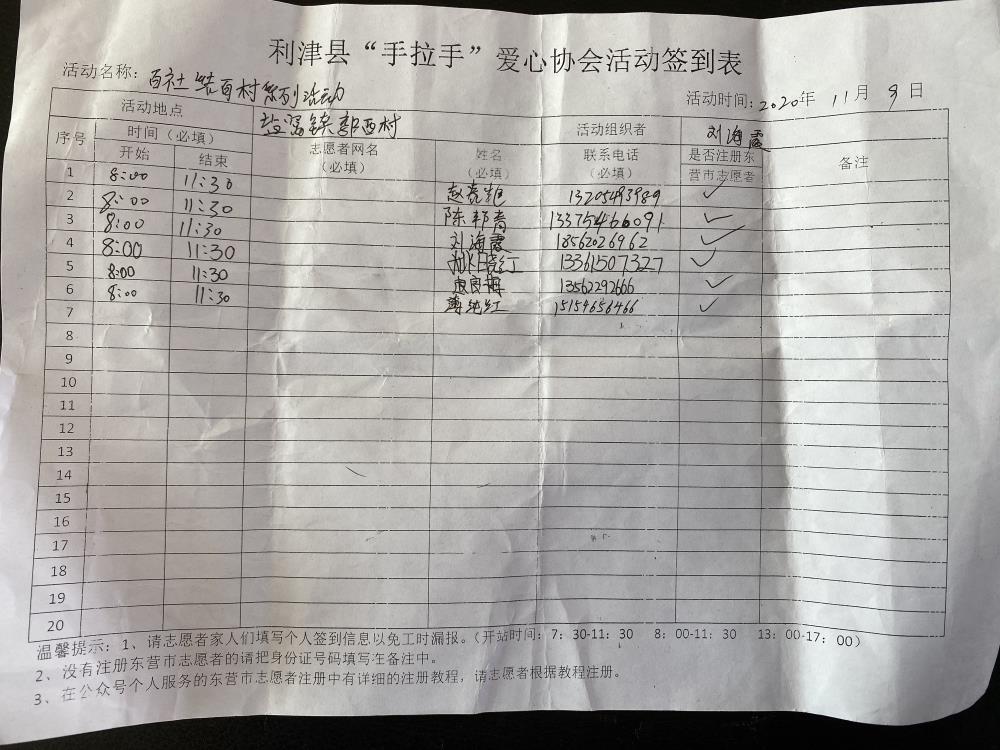 利津县“手拉手”爱心协会活动签到表
活动名称：百社 百村系列活动
活动时间：2020年 11月 9日
活动地点 盐窝镇 西村 活动组织者 刘海霞
序号 时间（必填） 志愿者网名（必填） 姓名（必填） 联系电话（必填） 是否注册东营市志愿者 备注
开始 结束
1 8:00 11:30 13205493989 ✓
2 8:00 11:30 陈邦青 13375466091 ✓
3 8:00 11:30 刘海霞 18562026962 ✓
4 8:00 11:30 13361507327 ✓
5 8:00 11:30 13562292666 ✓
6 8:00 11:30 薄纯红 15154656466 ✓
7
8
9
10
11
12
13
14
15
16
17
18
19
20
温馨提示：1、请志愿者家人们填写个人签到信息以免工时漏报。（开站时间：7：30-11：30 8：00-11：30 13：00-17：00）
2、没有注册东营市志愿者的请把身份证号码填写在备注中。
3、在公众号个人服务的东营市志愿者注册中有详细的注册教程，请志愿者根据教程注册。